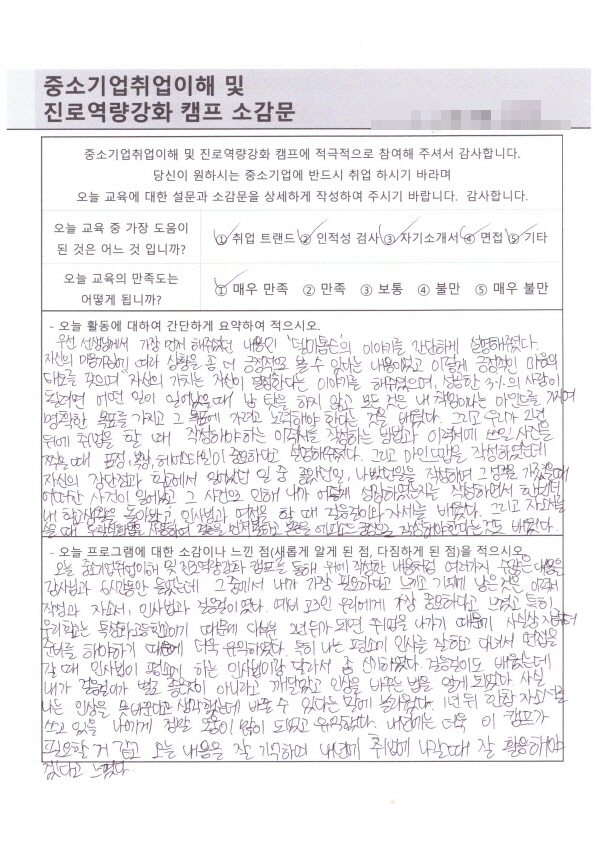 중소기업취업이해 및
진로역량강화 캠프 소감문
중소기업취업이해 및 진로역량강화 캠프에 적극적으로 참여해 주셔서 감사합니다.
당신이 원하시는 중소기업에 반드시 취업 하시기 바라며
오늘 교육에 대한 설문과 소감문을 상세하게 작성하여 주시기 바랍니다. 감사합니다.
오늘 교육 중 가장 도움이
된 것은 어느 것 입니까?
① 취업 트랜드 ② 인적성 검사 ③ 자기소개서 ④ 면접 ⑤ 기타
오늘 교육의 만족도는
어떻게 됩니까?
① 매우 만족 ② 만족 ③ 보통 ④ 불만 ⑤ 매우 불만
- 오늘 활동에 대하여 간단하게 요약하여 적으시오.
우선 선생님께서 가장 먼저 해주셨던 내용인 의 이야기를 간단하게 설명해주셨다.
자신의 마음가짐에 따라 상황을 좀 더 긍정적으로 볼 수 있다는 내용이었고 이렇게 긍정적인 마음의
태도를 갖으며 자신의 가치는 자신이 결정한다는 이야기를 해주셨으며, 성공한 3%의 사람이
된다면 어떤 일이 일어났을때 남 탓을 하지 않고 모든 것은 내 책임이라는 마인드를 가지며
명확한 목표를 가지고 그 목표에 가려고 노력해야 한다는 것을 배웠다. 그리고 우리가 2년
뒤에 취업을 할 때 작성해야하는 이력서를 작성하는 방법과 이력서에 쓰일 사진을
찍을때 표정, 복장, 헤어스타일이 중요하다고 설명해주셨다. 그리고 마인드맵을 작성하였는데
자신의 장단점과 학교에서 있었던 일 중 좋았던일, 나빴던일들을 작성하며 그
어떠한 사건이 일어났고 그 사건으로 인해 내가 어떻게 성장하였는지를 작성하면서
내 학교생활을 돌아봤고, 인사법과 면접을 할 때 걸음걸이와 자세를 배웠다. 그리고 자소서를
쓸 때 작성해야한다는것도 배웠다.
- 오늘 프로그램에 대한 소감이나 느낀 점(새롭게 알게 된 점, 다짐하게 된 점)을 적으시오.
오늘 중소기업취업이해 및 진로역량강화 캠프를 통해 위에 작성한 내용처럼 여러가지 수많은 내용을
강사님과 6시간동안 들었는데 그 중에서 내가 가장 필요하다고 느끼고 기억에 남은것은 이력서
작성과 자소서, 인사법과 걸음걸이였다. 예비 고3인 우리에게 가장 중요하다고 느꼈고 특히
우리학교는 특성화고등학교이기 때문에 다음 되면 취업을 나가기 때문에 사실상
준비를 해야하기 때문에 더욱 유익하였다. 특히 나는 평소에 인사를 잘하고 다녀서 면접을
갈 때 인사법이 평소에 하는 인사법이랑 달라서 좀 신기하였다. 걸음걸이도 배웠는데
내가 걸음걸이가 별로 좋았던 아니라고 깨달았고 인상을 바꾸는 법을 알게 되었다. 사실
나는 인상을 못바꾼다고 생각했는데 바꿀 수 있다는 말에 놀라웠다. 1년 뒤 한참 자소서를
쓰고 있을 나에게 정말 도움이 많이 되었고 유익했다. 내년에는 더욱 이 캠프가
필요할 거 같고 오늘 내용을 잘 기억하며 내년에 취업에 나갈때 잘 활용해야
겠다고 느꼈다.